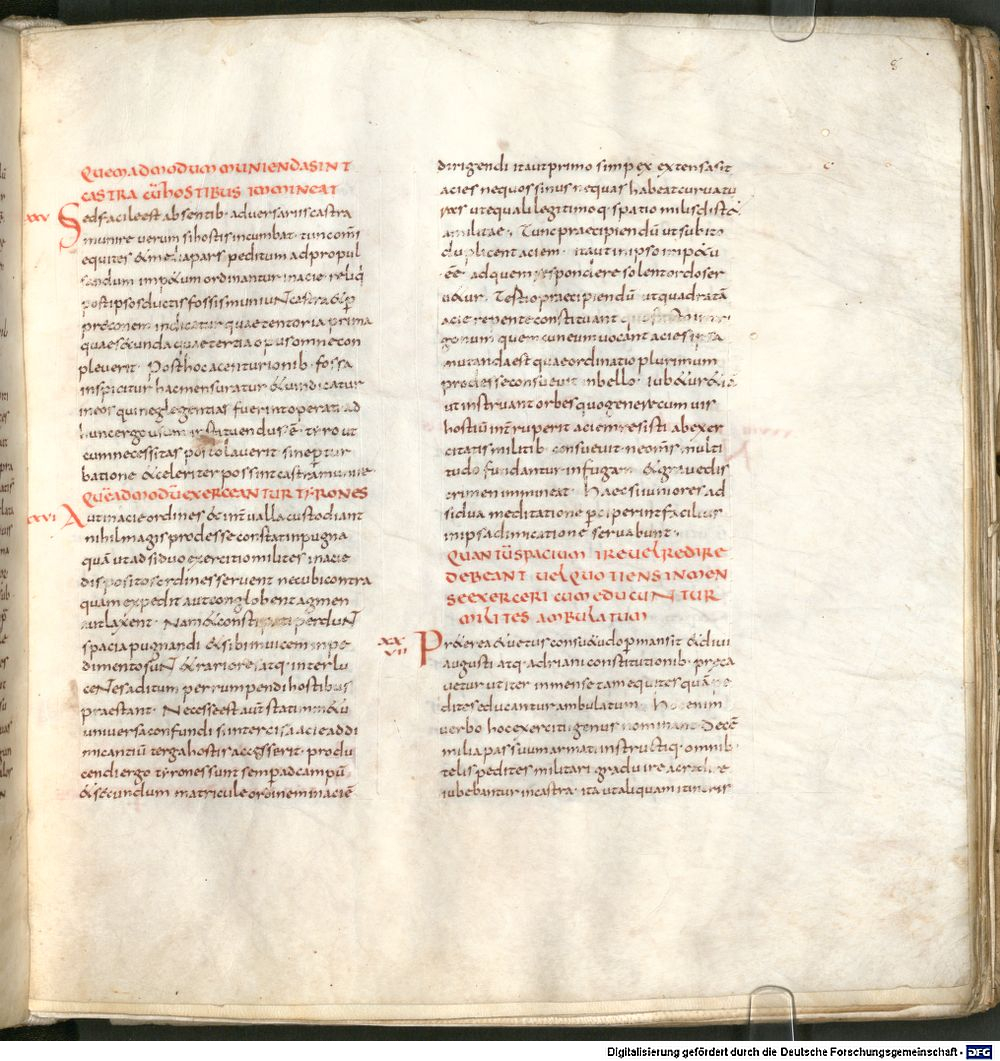 8
QUEMADMODUM MUNIENDA SINT
CASTRA CŪ HOSTIBUS IMMINEAT
XXV Sed facile est absentib· adversariis castra
munire verum si hostis incumbat· tunc om̄i
equites & media pars peditum ad propul
sandum imp&um ordinantur in acie reliq̄
post ipsos ductis fossis muniuNt castra & p̄
preconem indicatur quae tentoria prima
quae secunda quae tertia opus omne con
pleverit· Post hoc a centurionib· fossa
inspicitur hac mensuratur & vindicatur
in eos qui neglegentias fuerint operati ad
hunc ergo usum instituendus ē· tyro ut
cum necessitas postolaverit sine p̄tur
batione & celeriter possint castra munire
QUĒADMODŪ EXERCEANTUR TYRONES
XXVI Aut in acie ordines & int̄valla custodiant
nihil magis prodesse constat in pugna
quā ut adsiduo exercitio milites in acie
dispositos ordines servent necubi contra
quam expedit aut conglobent agmen
aut laxent· Nam & constipati perduNt
spacia pugnandi & sibi invicem inpe
dimento suNt & rariores atq· interlu
ceNtes aditum perrumpendi hostibus
praestant· Necesse est aut̄ statim m&u
universa confundi si intercisa acie ad di
micantiū terga hostis accesserit· produ
cendi ergo tyrones sunt semp̄ ad campū
& secundum matricule ordinem in aciē
dirigendi ita ut primo simpex extensa sit
acies ne quos sinus ne quas habeat curvatu
ras ut equali legitimoq· spatio miles dist&
a milite· Tunc praecipiendū ut subito
duplicent aciem· ita ut in ipso imp&u
ēē· ad quem respondere solent ordo ser
v&ur· Testio praecipiendū ut quadratā
aciē repente constituant
gonum quem cuneum vocant acies ipsa
mutanda est quae ordinatio plurimum
prodesse consuevit in bello· iub&ur &iā
ut instruant orbes quo genere cum vis
hostiū int̄ruperit aciem resisti ab exer
citatis militib· consuevit ne om̄is multi
tudo fundantur in fugam & grave dis
crimen immineat· Haec si iuniores ad
sidua meditatione p̄ceperint facilius
in ipsa dimicatione servabunt·
QUANTŪ SPACIUM IRE VEL REDIRE
DEBEANT VEL QUOTIENS IN MEN
SE EXERCERI CUM EDUCUNTUR
MILITES AMBULATUM
XXVII Pr&erea & vetus consu&udo p̄mansit & divi
augusti atq· adriani constitutionib· preca
v&ur ut ter in mense tam equites quā pe
dites educantur ambulatum· Hoc enim
verbo hoc exerciti genus nominant· Decē
milia passuum armati instructiq· omnib·
telis pedites militari gradu ire ac redire
iubebantur in castra· ita ut aliquam itineris
Digitalisierung gefördert durch die Deutsche Forschungsgemeinschaft - DFG